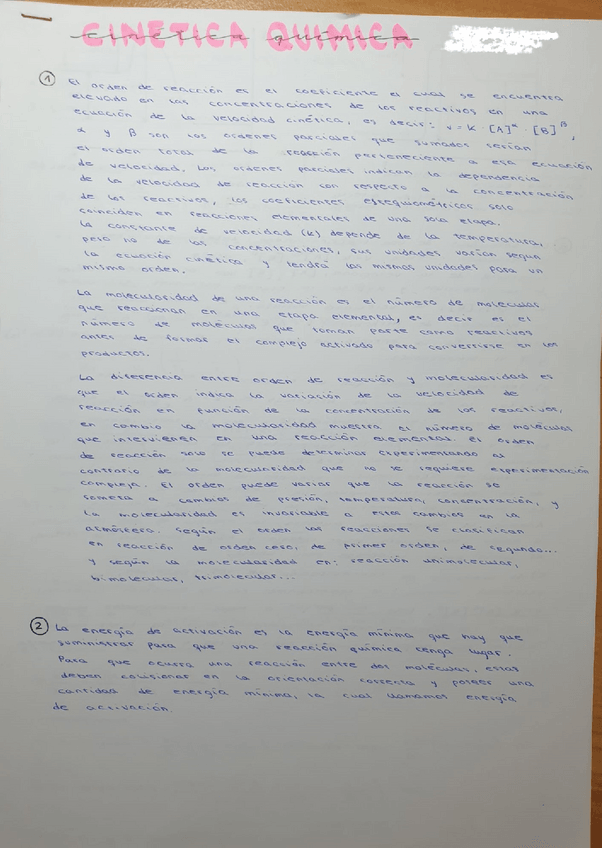 CINÉTICA QUÍMICA
cinética química
1 El orden de reacción es el coeficiente al cual se encuentra
elevado en las concentraciones de los reactivos en una
ecuación de la velocidad cinética, es decir: v = k · [A]^α · [B]^β,
α y β son los ordenes parciales que sumados serían
el orden total de la reacción perteneciente a esa ecuación
de velocidad. Los ordenes parciales indican la dependencia
de la velocidad de reacción con respecto a la concentración
de los reactivos, los coeficientes estequiométricos solo
coinciden en reacciones elementales de una sola etapa.
La constante de velocidad (k) depende de la temperatura,
pero no de las concentraciones, sus unidades varían según
la ecuación cinética y tendrá las mismas unidades para un
mismo orden.
La molecularidad de una reacción es el número de moléculas
que reaccionan en una etapa elemental, es decir es el
número de moléculas que toman parte como reactivos
antes de formar el complejo activado para convertirse en los
productos.
La diferencia entre orden de reacción y molecularidad es
que el orden indica la variación de la velocidad de
reacción en función de la concentración de los reactivos,
en cambio la molecularidad muestra el número de moléculas
que intervienen en una reacción elemental. El orden
de reacción solo se puede determinar experimentando al
contrario de la molecularidad que no se requiere experimentación
compleja. El orden puede variar que la reacción se
someta a cambios de presión, temperatura, concentración, y
la molecularidad es invariable a estos cambios en la
atmósfera. Según el orden las reacciones se clasifican
en reacción de orden cero, de primer orden, de segundo...
y según la molecularidad en: reacción unimolecular,
bimolecular, trimolecular...
2 La energía de activación es la energía mínima que hay que
suministrar para que una reacción química tenga lugar.
Para que ocurra una reacción entre dos moléculas, estas
deben colisionar en la orientación correcta y poseer una
cantidad de energía mínima, la cual llamamos energía
de activación.